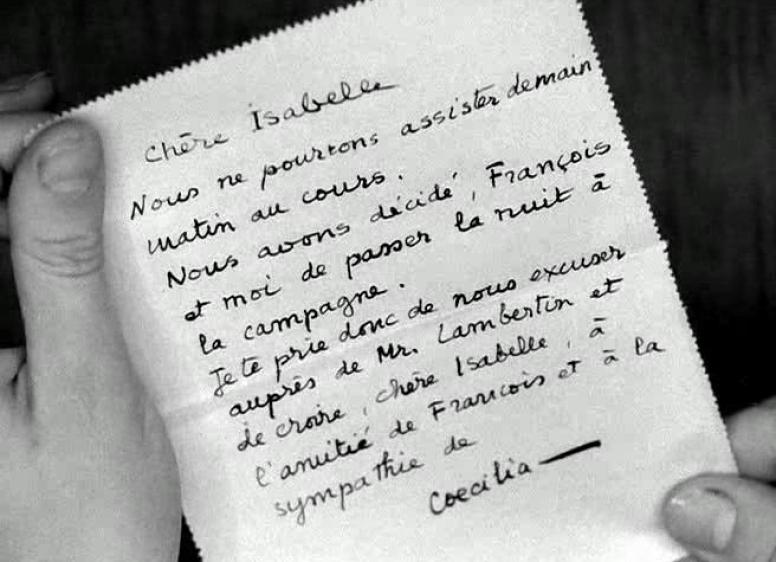 Chère Isabelle
Nous ne pourrons assister demain
matin au cours.
Nous avons décidé, François
et moi de passer la nuit à
la campagne.
Je te prie donc de nous excuser
auprès de Mr. Lambertin et
de croire, chère Isabelle, à
l'amitié de François et à la
sympathie de
Coecilia